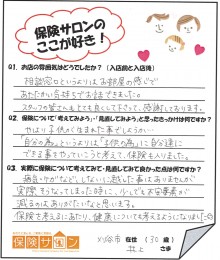 保険サロンの
ここが好き！
Q1. お店の雰囲気はどうでしたか？（入店前と入店後）
相談窓口というよりはお部屋の感じで
あたたかい気持ちでお話できました。
スタッフの皆さんもとても良くして下さって、感謝しております。
Q2. 保険について「考えてみよう」「見直してみよう」と思ったきっかけは何ですか？
やはり子供が生まれた事でしょうか…
「自分の為」というよりは「子供の為」に自分達に
できる事をやっていこうと考えて、保険も入りました。
Q3. 実際に保険について考えて・見直してみて良かった点は何ですか？
病気・ケガなど、しないに越した事はありませんが
実際そうなってしまった時に、少しでも不安要素が
減るのはありがたいなと思います。
保険を考えるにあたり、健康についても考えるようになりました
保険サロン
刈谷市 在住 （32歳）
井上 さま